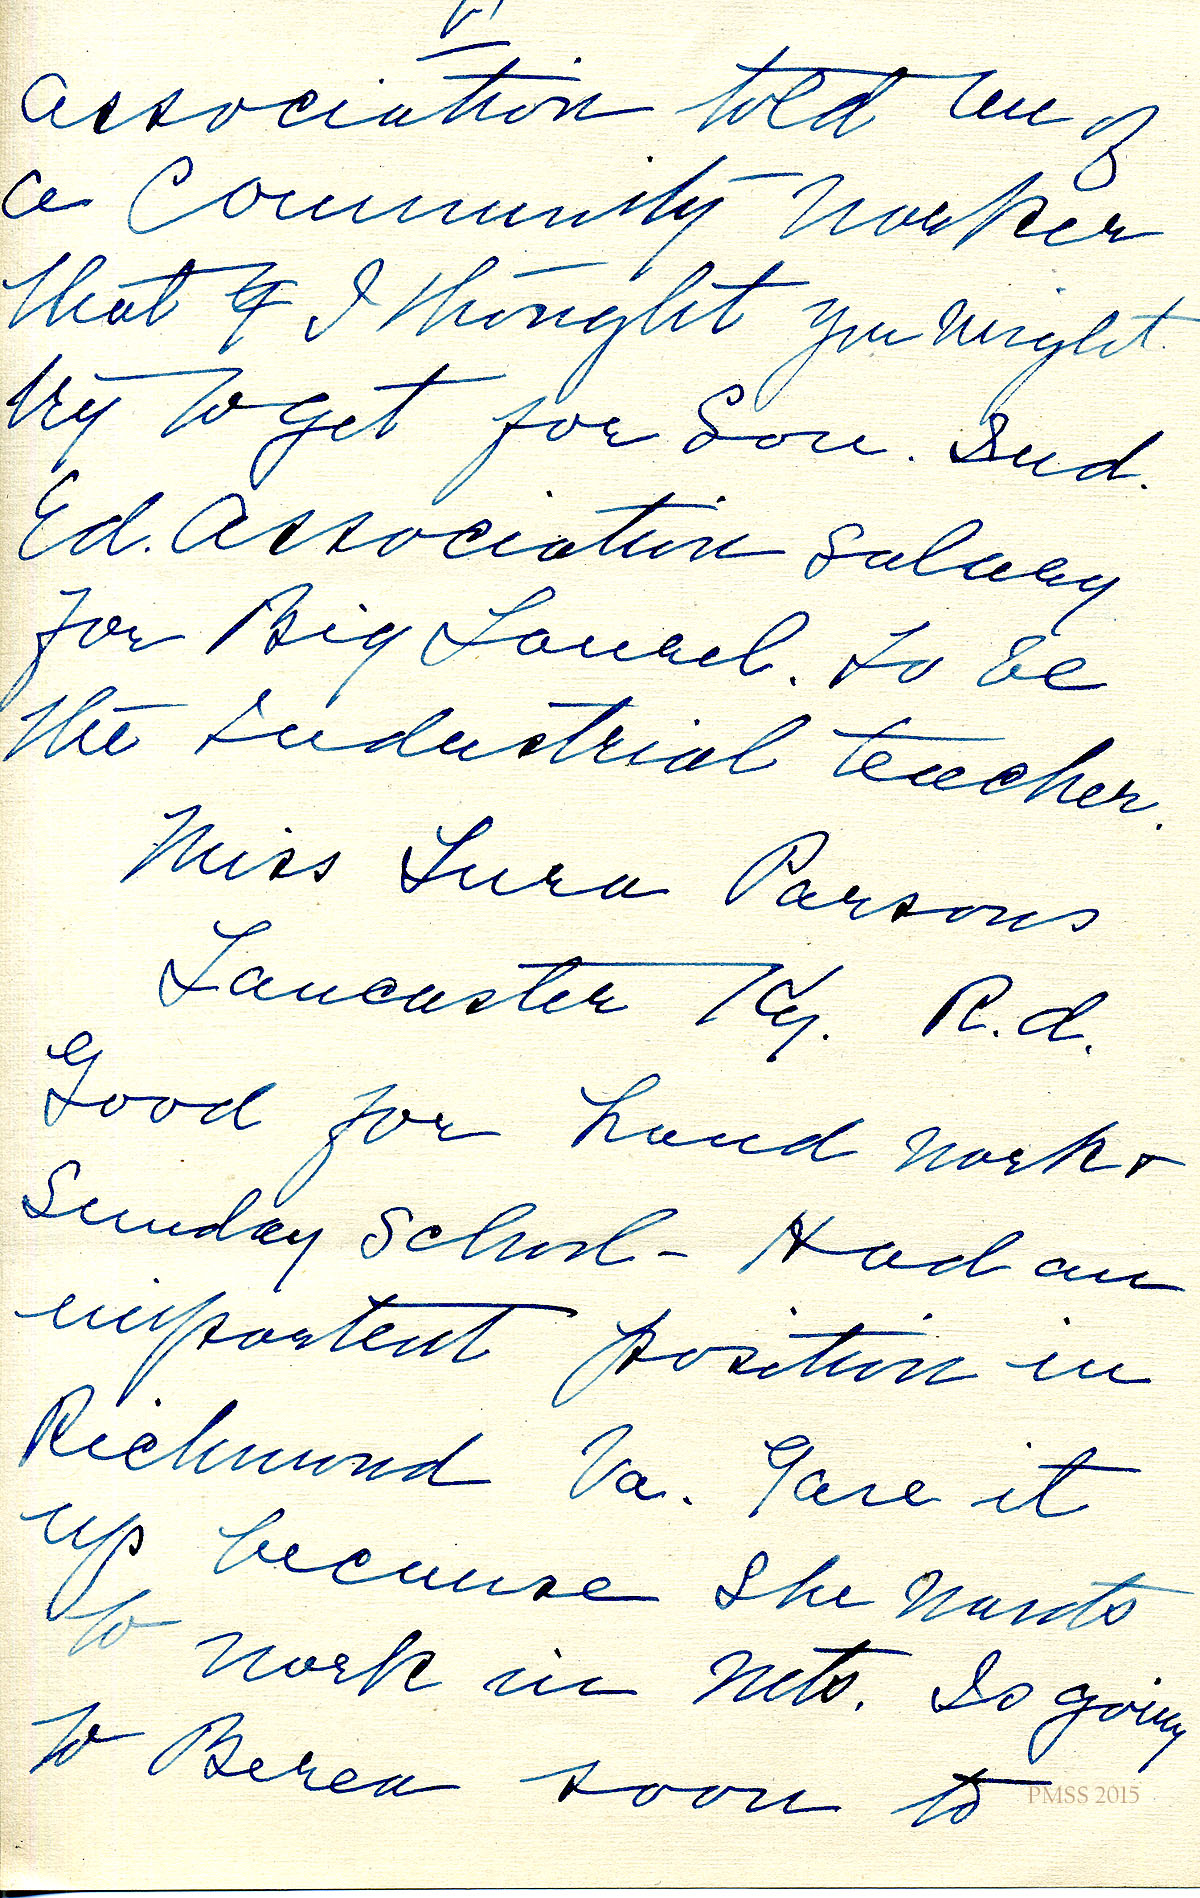 association told me of
a Community worker
that I thought you might
try to get for Sou. Ind.
Ed. Association salary
for Big Laurel. to be
the industrial teacher.
Miss Lura Parsons
Lancaster Ky. R.d.
Good for hand work &
Sunday School - Had an
important position in
Richmond Va. Gave it
up because she wants
to work in Mts. Is going
to Berea soon to
PMSS 2015